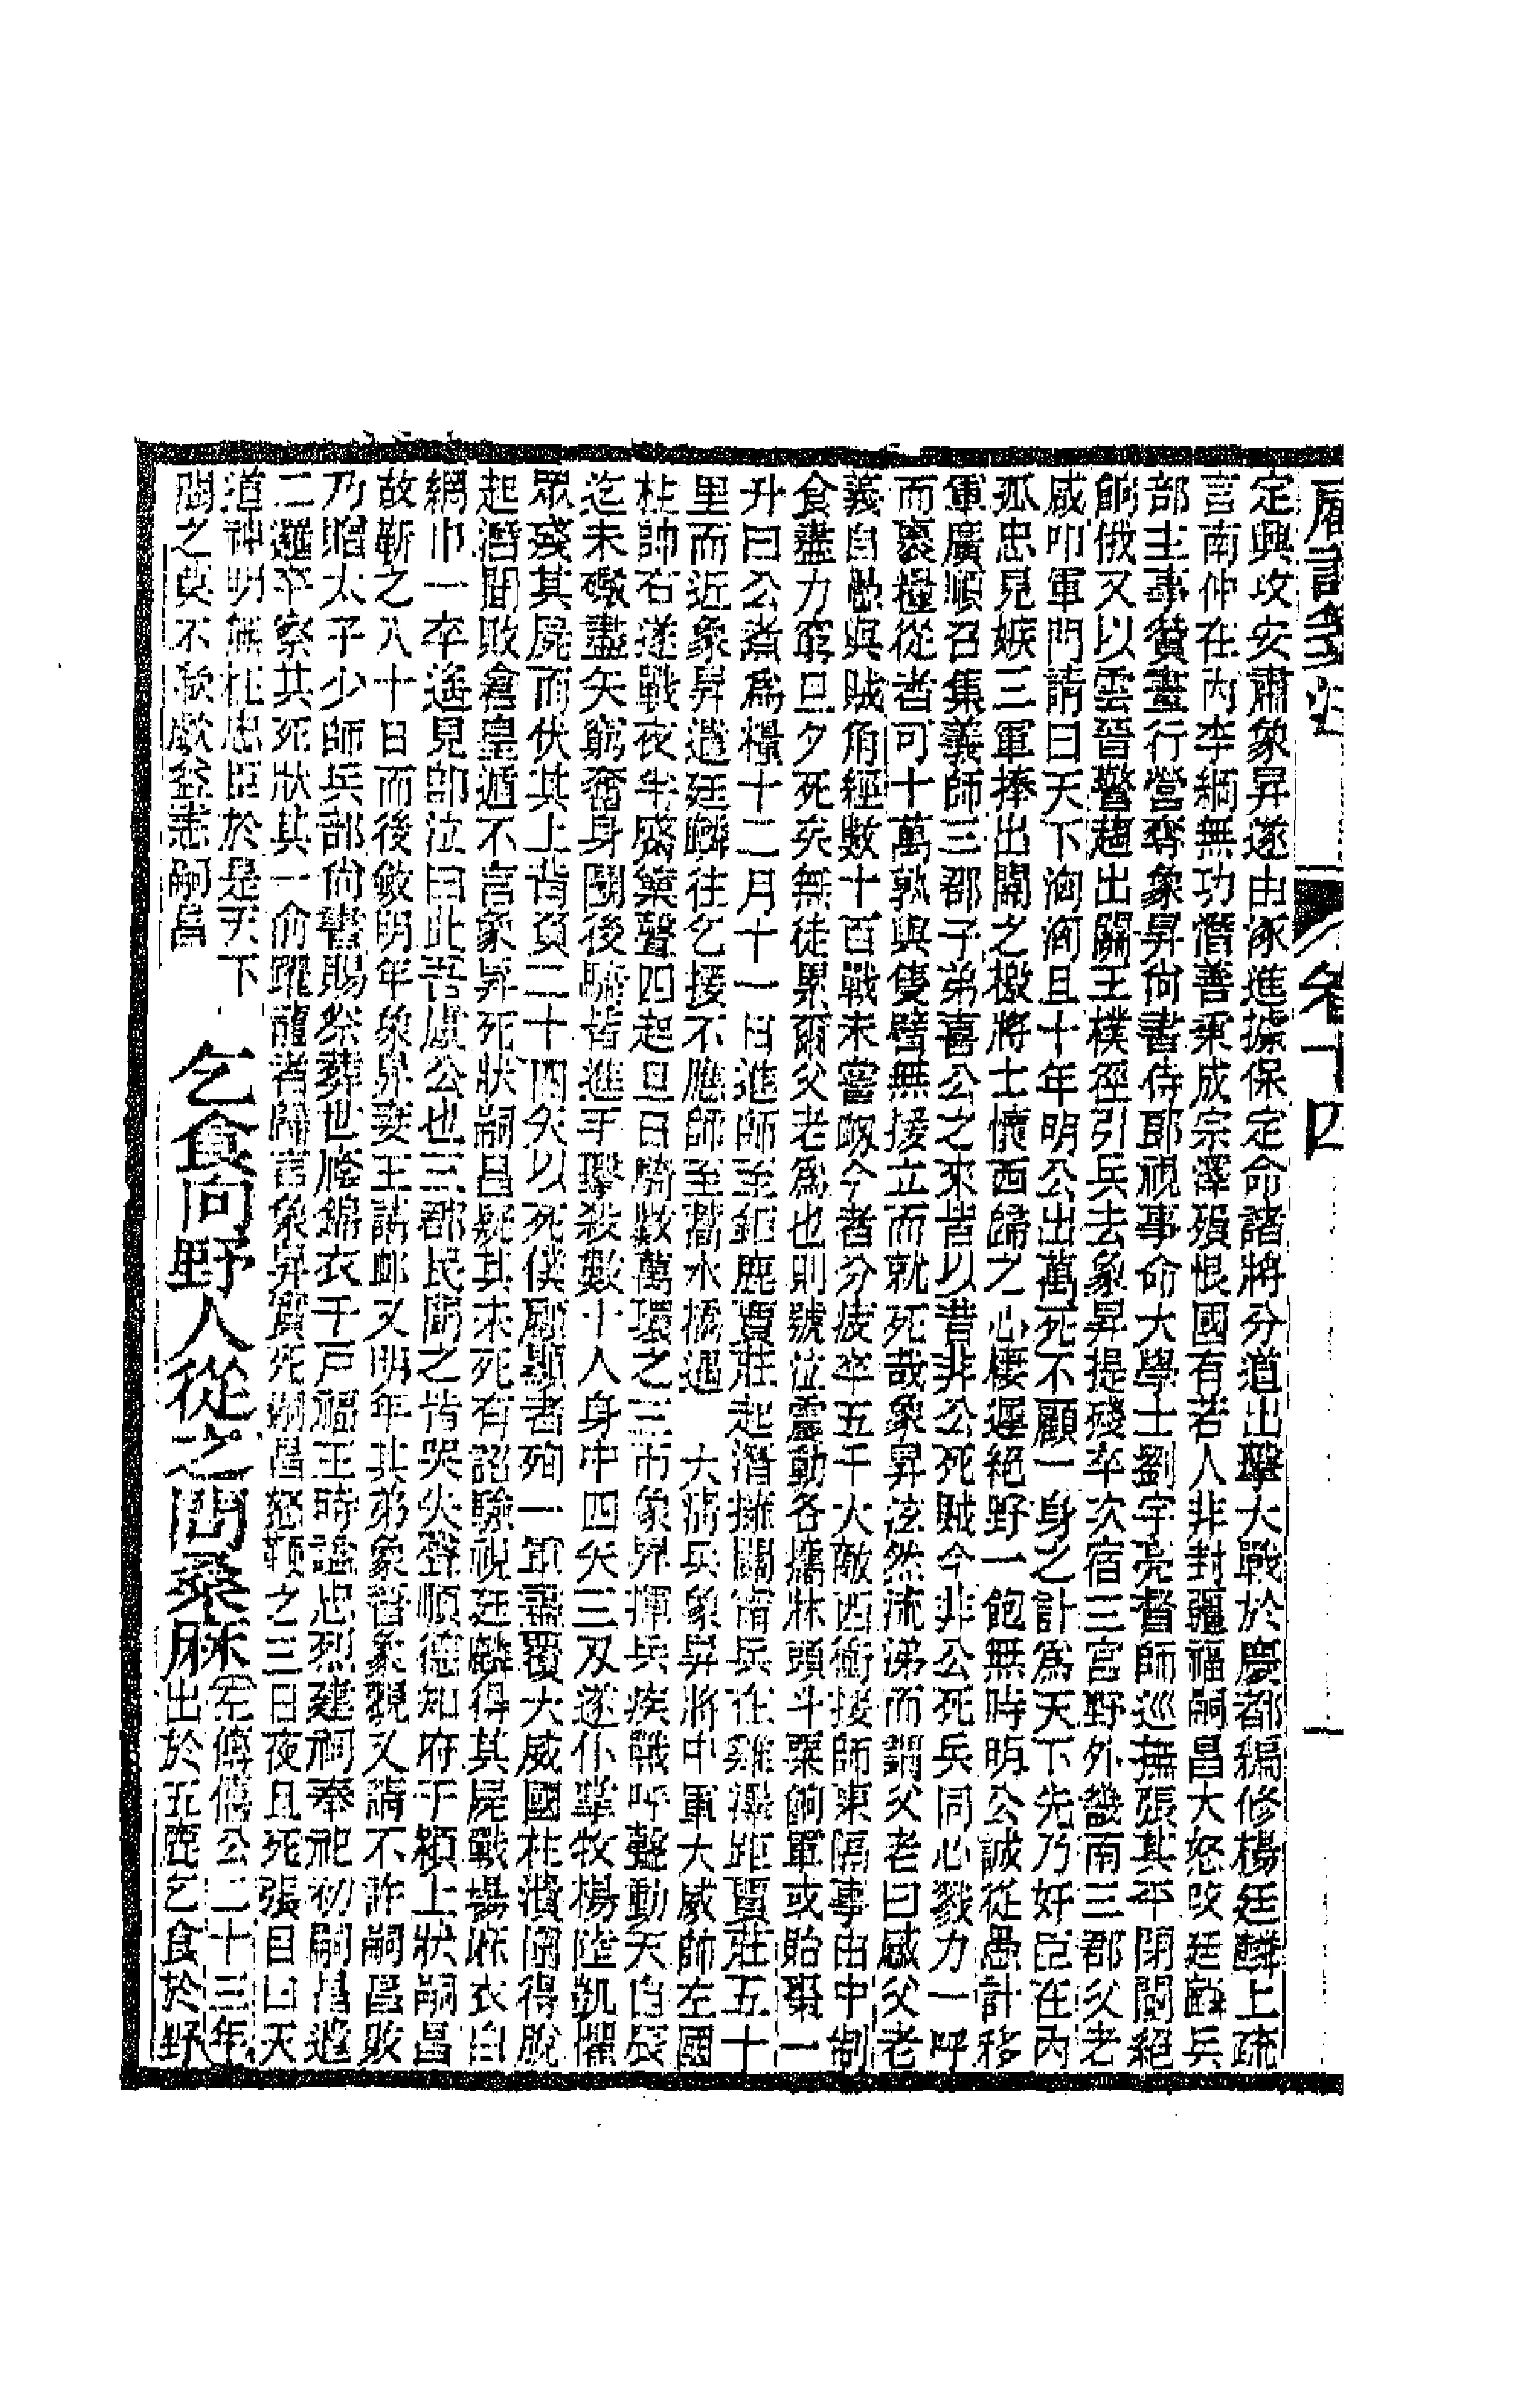 卷十四
一
定興攻安肅象昇遂由涿進據保定命諸將分道出擊大戰於慶都編修楊廷麟上疏
言南仲在內李綱無功潛善秉成宗澤殞恨國有若人非封疆福嗣昌大怒改廷麟兵
部主事贊畫行營奪象昇尚書侍郎視事命大學士劉宇亮督師巡撫張其平閉闗絕
餉俄又以雲晉警趨出關王樸徑引兵去象昇提殘卒次宿三宮野外畿南三郡父老
咸叩軍門請曰天下洶洶且十年明公出萬死不顧一身之計為天下先乃奸臣在內
孤忠見嫉三軍捧出關之檄將士懷西歸之心棲遲絕野一飽無時明公誠從愚計移
軍廣順召集義師三郡子弟喜公之來皆以昔非公死賊今非公死兵同心戮力一呼
而裹糧從者可十萬孰與隻臂無援立而就死哉象昇泫然流涕而謂父老曰感父老
義自慙與賊角經數十百戰未嘗衂今者分疲卒五千大敵西衝援師東隔事由中制
食盡力窮旦夕死矣無徒累爾父老為也則號泣震動各攜牀頭斗粟餉軍或貽棗一
升曰公煮為糧十二月十一日進師至鉅鹿賈莊起潛擁關甯兵在雞澤距賈莊五十
里而近象昇遣廷麟往乞援不應師至蒿水橋遇　大清兵象昇將中軍大威帥左國
柱帥右遂戰夜半觱篥聲四起旦日騎數萬環之三帀象昇揮兵疾戰呼聲動天自辰
迄未礮盡矢窮奮身鬬後騎皆進手擊殺數十人身中四矢三刃遂仆掌牧楊陸凱懼
眾殘其屍而伏其上背負二十四矢以死僕顧顯者殉一軍盡覆大威國柱潰圍得脫
起潛聞敗倉皇遁不言象昇死狀嗣昌疑其未死有詔驗視廷麟得其屍戰場麻衣白
網巾一卒遙見即泣曰此吾盧公也三郡民聞之皆哭失聲順德知府于穎上狀嗣昌
故靳之八十日而後斂明年象昇妻王請卹又明年其弟象晉象觀又請不許嗣昌敗
乃贈太子少師兵部尚書賜祭葬世廕錦衣千戶福王時諡忠烈建祠奉祀初嗣昌遣
二邏卒察其死狀其一俞躍龍者歸言象昇實死嗣昌怒鞭之三日夜且死張目曰天
道神明無枉忠臣於是天下
聞之莫不歔欷益恚嗣昌
乞食向野人從之問桑麻
左傳僖公二十三年
出於五鹿乞食於野